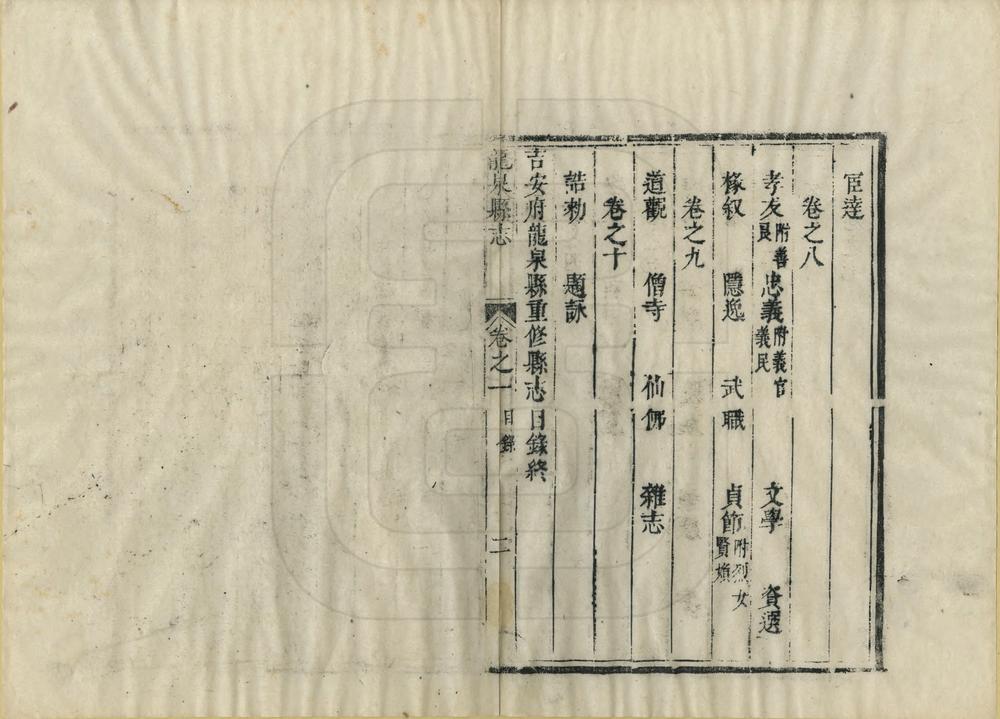 宦達
卷之八
孝友 附善良 忠義 附義官義民 文學 資選
椽叙 隱逸 武職 貞節 附烈女賢媍
卷之九
道觀 僧寺 仙佛 雜志
卷之十
誥勅 題詠
吉安府龍泉縣重修縣志目錄終
龍泉縣志 卷之一 目錄 二